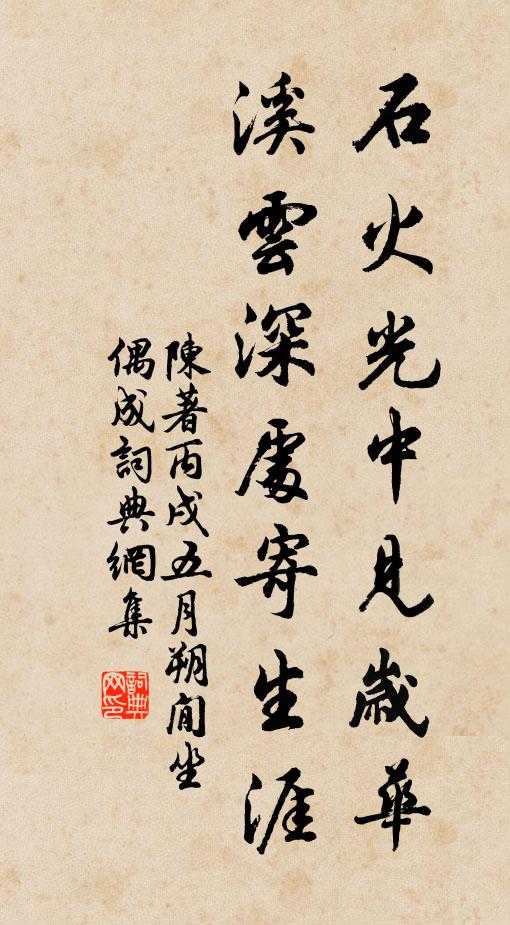 石火光中見歲華
溪雲深處寄生涯
陳著丙戌五月朔間坐
偶成詞典網集
詞典
網印